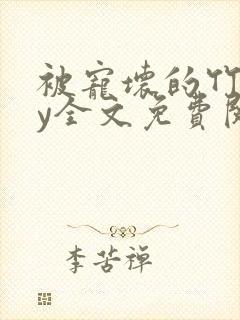 被寵壞的竹
y全文免費閱
李苦禅